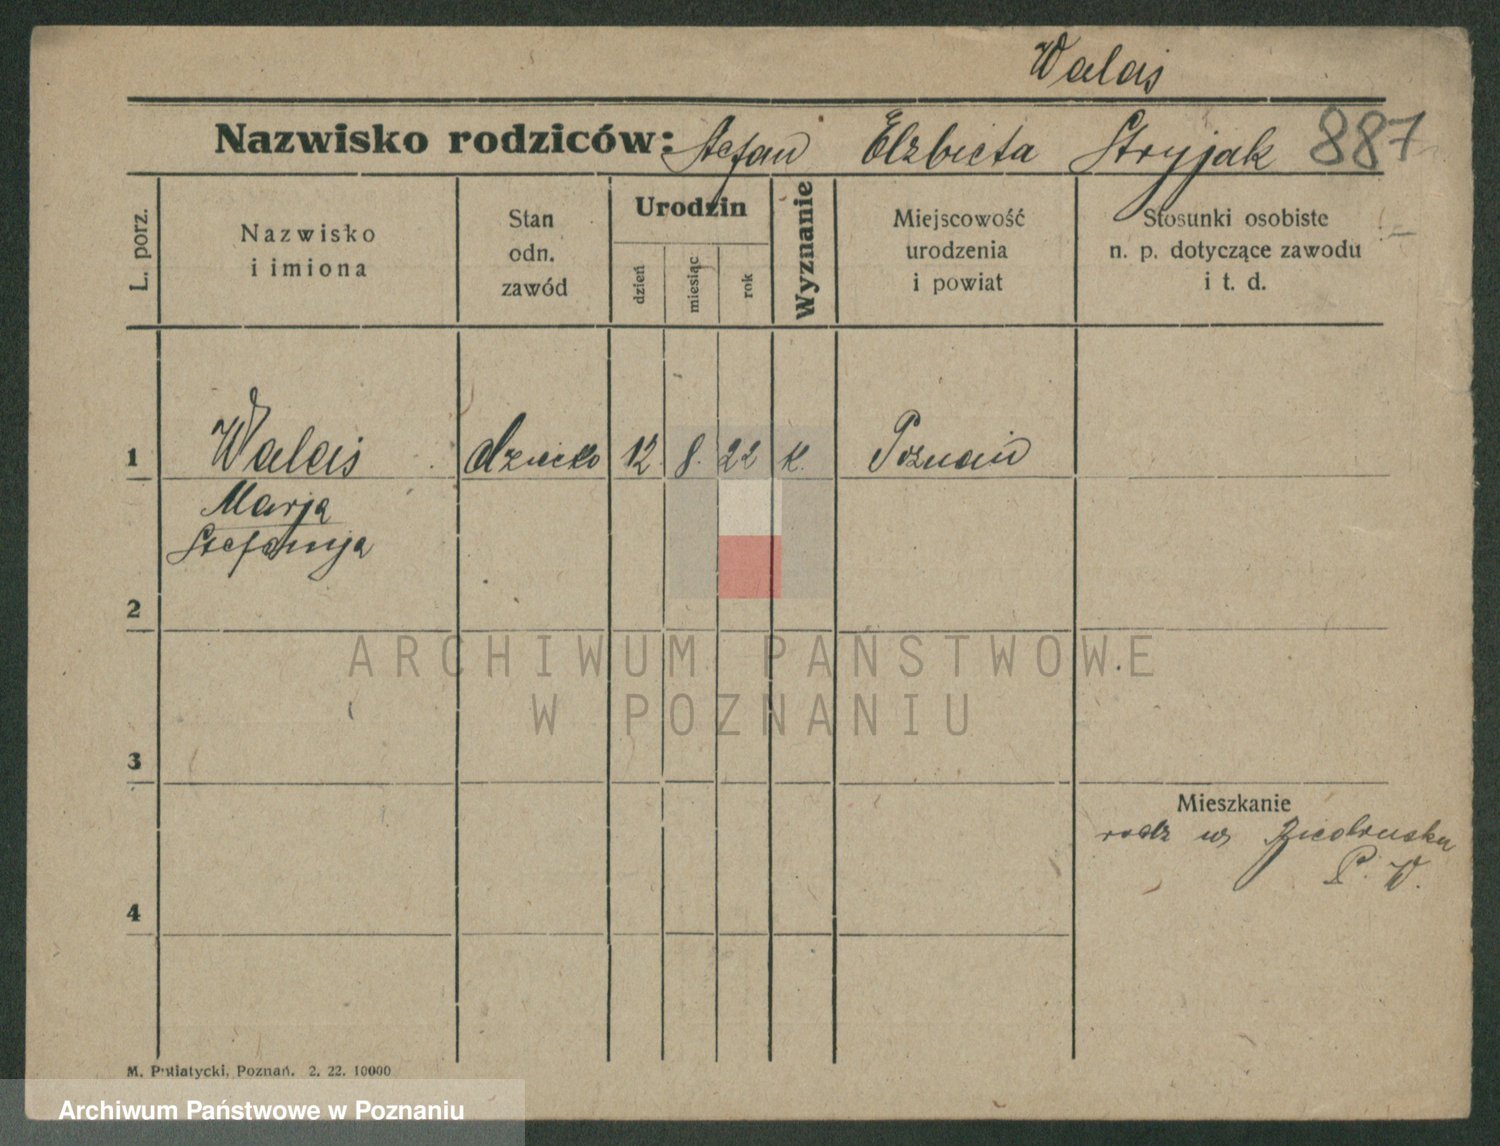 Walaś
Nazwisko rodziców: Stefan Elżbieta Stryjak 887
L. porz.
Nazwisko
i imiona
Stan
odn.
zawód
Urodzin
dzień
miesiąc
rok
Wyznanie
Miejscowość
urodzenia
i powiat
Stosunki osobiste
n. p. dotyczące zawodu
i t. d.
1 Walaś dziecko 12 8. 22 k. Poznań
Marja
Stefanja
2
ARCHIWUM PAŃSTWOWE
W POZNANIU
3
Mieszkanie
rodz w
P. W.
4
M. Putiatycki, Poznań. 2. 22. 10000
Archiwum Państwowe w Poznaniu